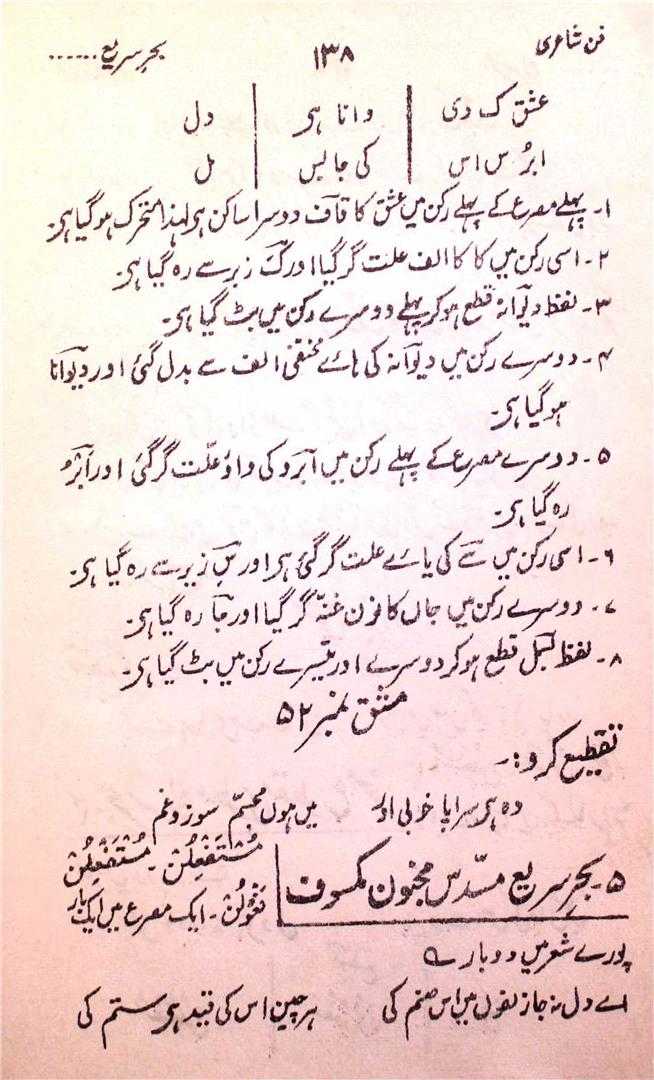 فن شاعری ۱۳۸ بحرِ سریع......
عشق ک دی | وانا ہی | دل
ابرُ س اس | کی جا لبس | مل
۱۔ پہلے مصرع کے پہلے رکن میں عشق کا قاف دوسرا ساکن ہی لہذا متحرک ہوگیا ہی۔
۲۔ اسی رکن میں کا کا الف علت گرگیا اور کَ زبر سے رہ گیا ہی۔
۳۔ لفظ دیوانہ قطع ہوکر پہلے دوسرے رکن میں بٹ گیا ہی۔
۴۔ دوسرے رکن میں دیوانہ کی ہائے مختفی الف سے بدل گئی اور دیوانا
ہوگیا ہی۔
۵۔ دوسرے مصرع کے پہلے رکن میں آبرو کی واؤ علّت گرگئی اور آبرُ
رہ گیا ہی۔
۶۔ اسی رکن میں سے کی یائے علت گرگئی ہی اور سِ زیر سے رہ گیا ہی۔
۷۔ دوسرے رکن میں جاں کا نون غنّہ گرگیا اور جا رہ گیا ہی۔
۸۔ لفظ قطع ہوکر دوسرے اور تیسرے رکن میں بٹ گیا ہی۔
مشق نمبر ۵۲
تقطیع کرو:۔
وہ ہی سراپا خوبی اور میں ہوں مجسّم سوز و غم
۵۔ بحرِ سریع مسدّس مخبون مکسوف مُسْتَفْعِلُنْ۔ مُسْتَفْعِلُنْ
فَعُوْلُنْ۔ ایک مصرع میں ایک بار
پورے شعر میں دوبارے
اے دل نہ جا زلفوں میں اس صنم کی ہر چین اس کی قید ہی ستم کی